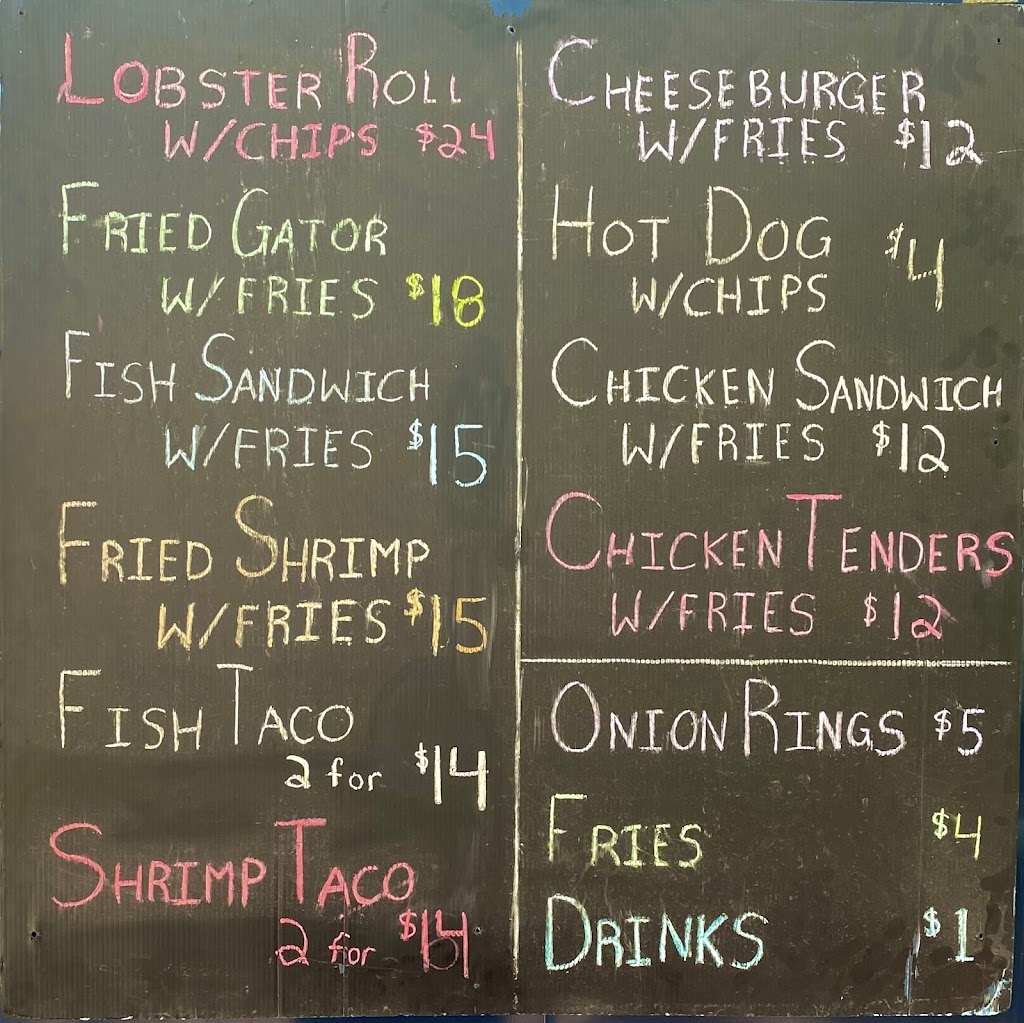 LOBSTER ROLL
W/CHIPS $24
FRIED GATOR
W/FRIES $18
FISH SANDWICH
W/FRIES $15
FRIED SHRIMP
W/FRIES $15
FISH TACO
2 for $14
SHRIMP TACO
2 for $14
CHEESEBURGER
W/FRIES $12
HOT DOG $4
W/CHIPS
CHICKEN SANDWICH
W/FRIES $12
CHICKEN TENDERS
W/FRIES $12
ONION RINGS $5
FRIES $4
DRINKS $1